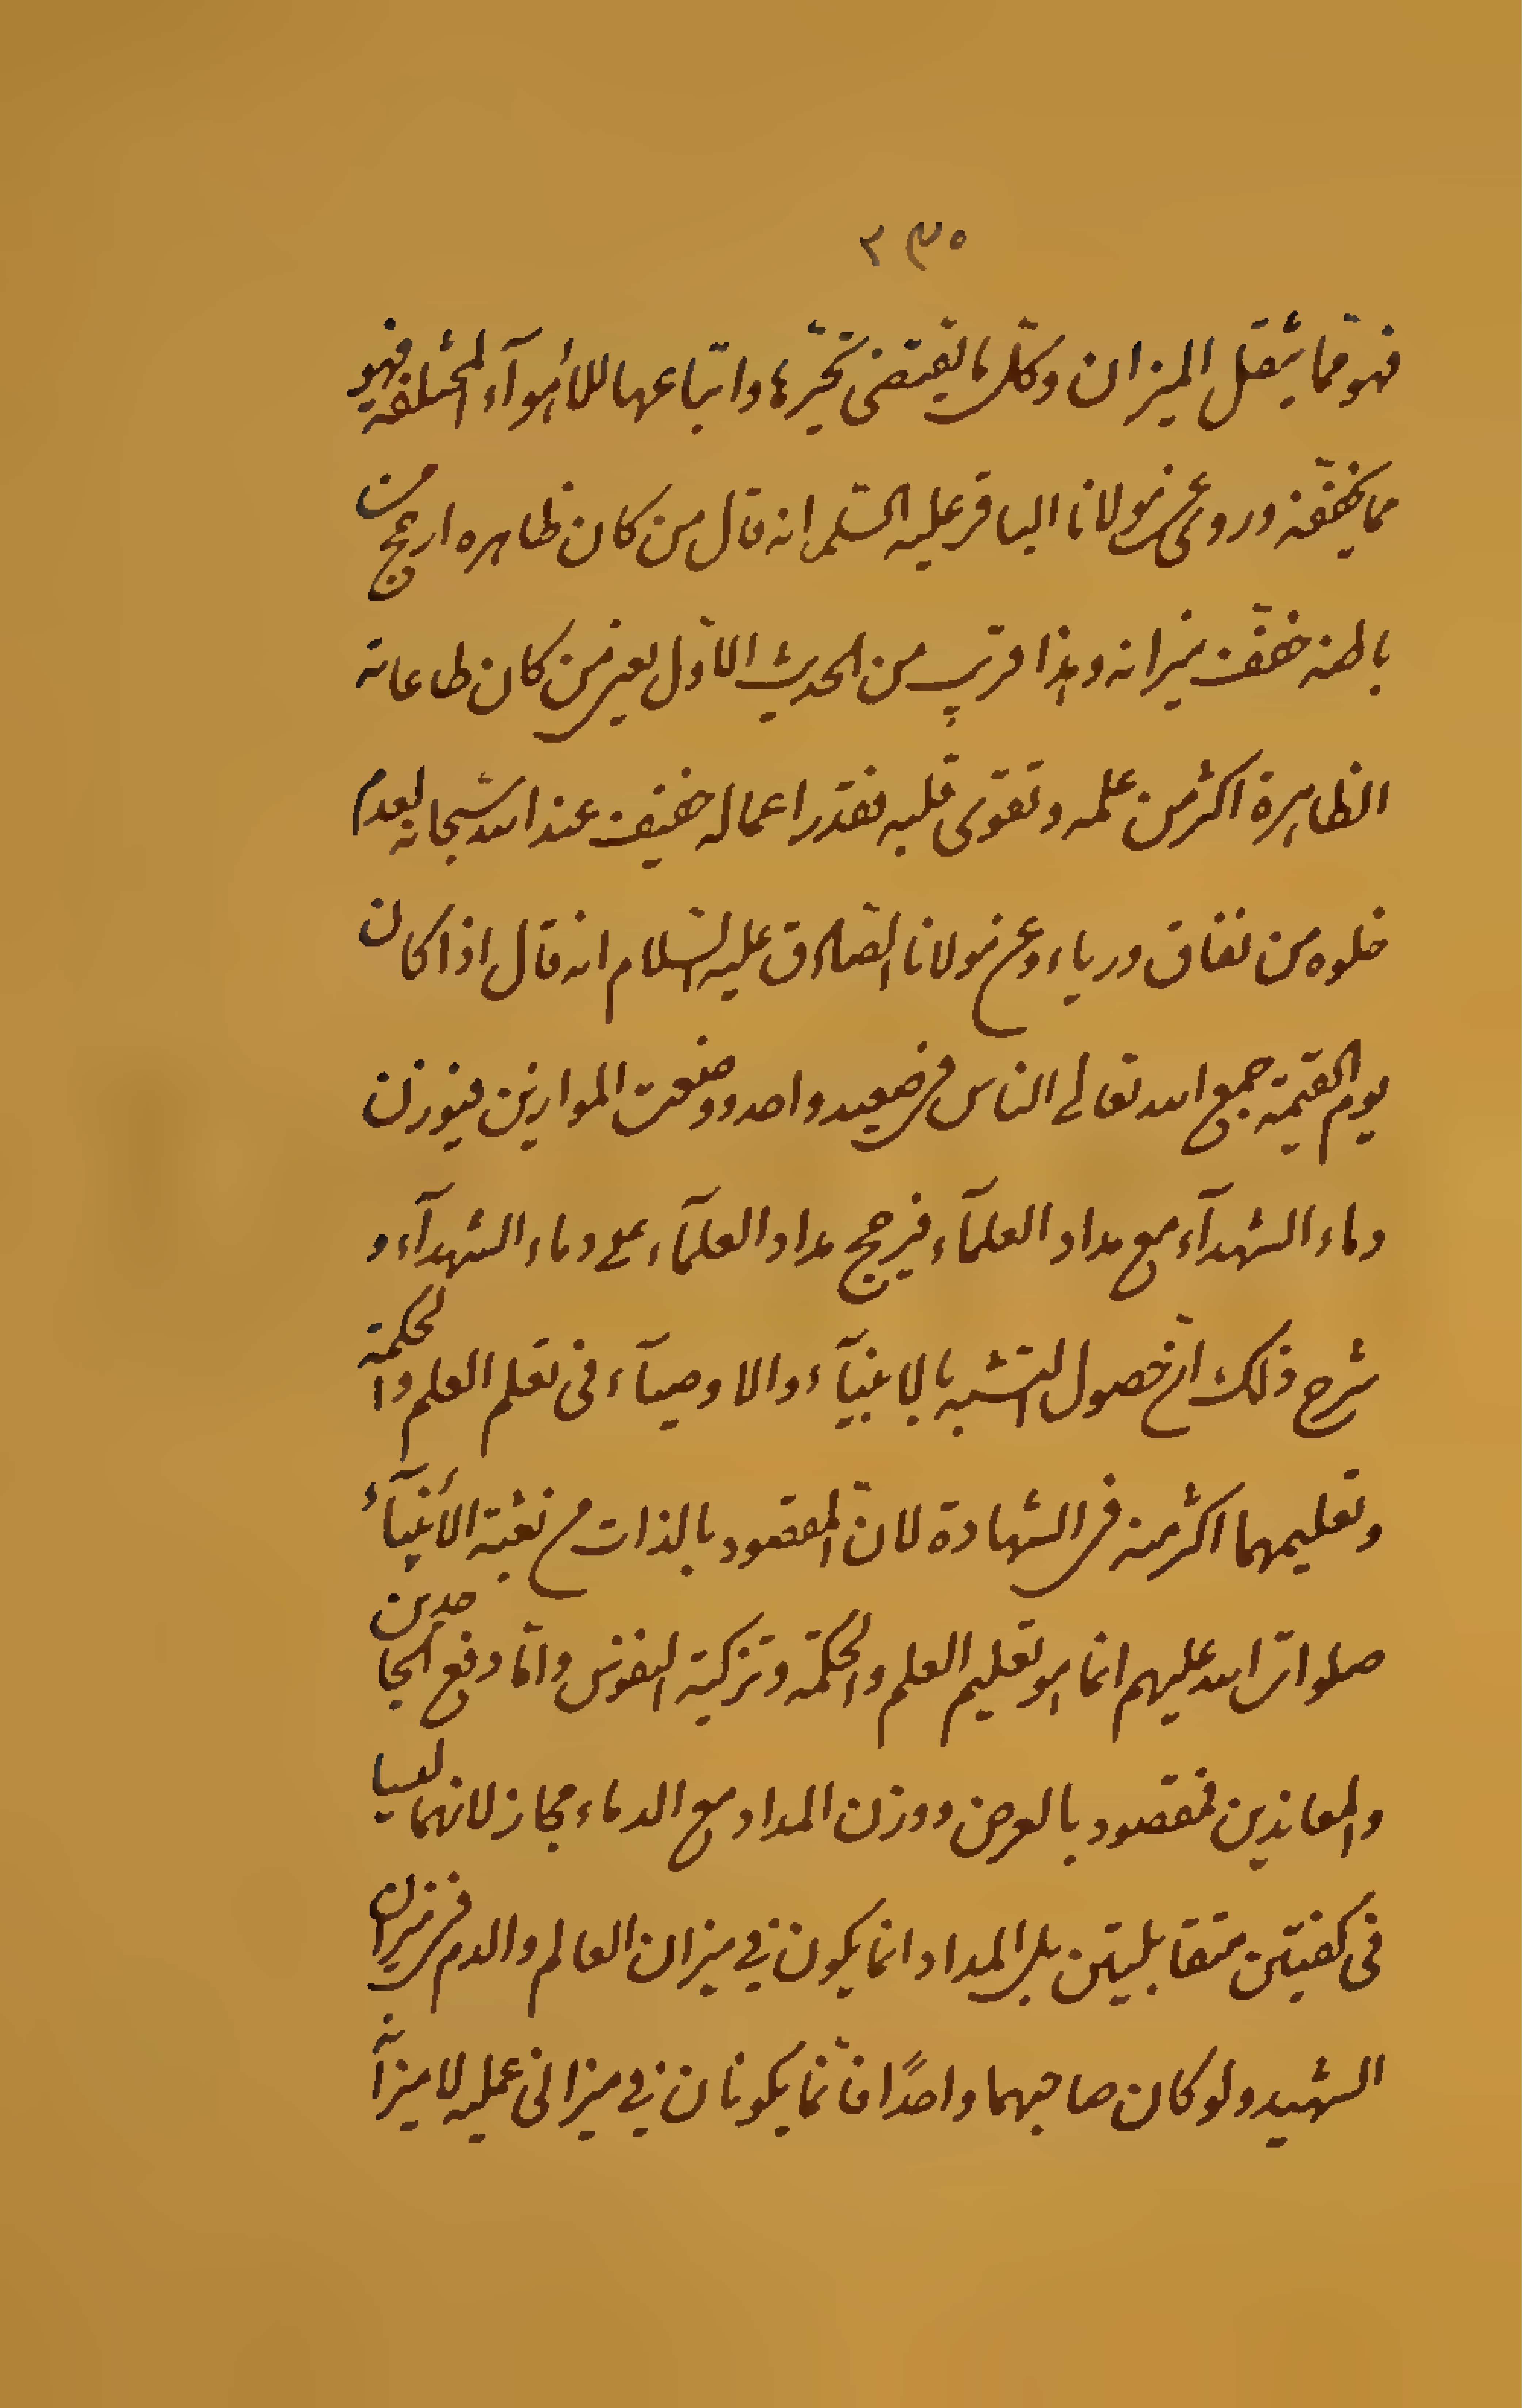 ٢٣٥
فهو مما يثقل الميزان وكلّ ما يقتضى تحيّرها واتباعها للأهوآء المختلفة فهو
مما يخفّفه وروى عن مولانا الباقر عليه السّلم انه قال من كان ظاهره ارجح من
باطنه خفّف ميزانه وهذا قريب من الحديث الاوّل يعنى من كان طاعاته
الظاهرة اكثر من علمه وتقوى قلبه فقدر اعماله خفيف عند الله سبحانه لعدم
خلوه من نفاق ورياء وعن مولانا الصّادق عليه السّلام انه قال اذا كان
يوم القيمة جمع الله تعالى الناس فى صعيد واحد ووضعت الموازين فيوزن
دماء الشهدآء مع مداد العلمآء فيرجح مداد العلمآء على دماء الشهدآء و
شرح ذلك انّ حصول التشبه بالانبيآء والاوصيآء فى تعلم العلم والحكمة
وتعليمهما اكثر منه فى الشهادة لانّ المقصود بالذات من بعثة الأنبيآء
صلوات الله عليهم انما هو تعليم العلم والحكمة وتزكية النفوس وامّا دفع الجاحدين
والمعاندين فمقصود بالعرض ووزن المداد مع الدماء مجاز لانهما ليسا
فى كفيتن متقابليتن بل المداد انما يكون فى ميزان العالم والدم فى ميزان
الشهيد ولو كان صاحبهما واحدًا فانّما يكونان فى ميزانى عمليه لا ميزانه